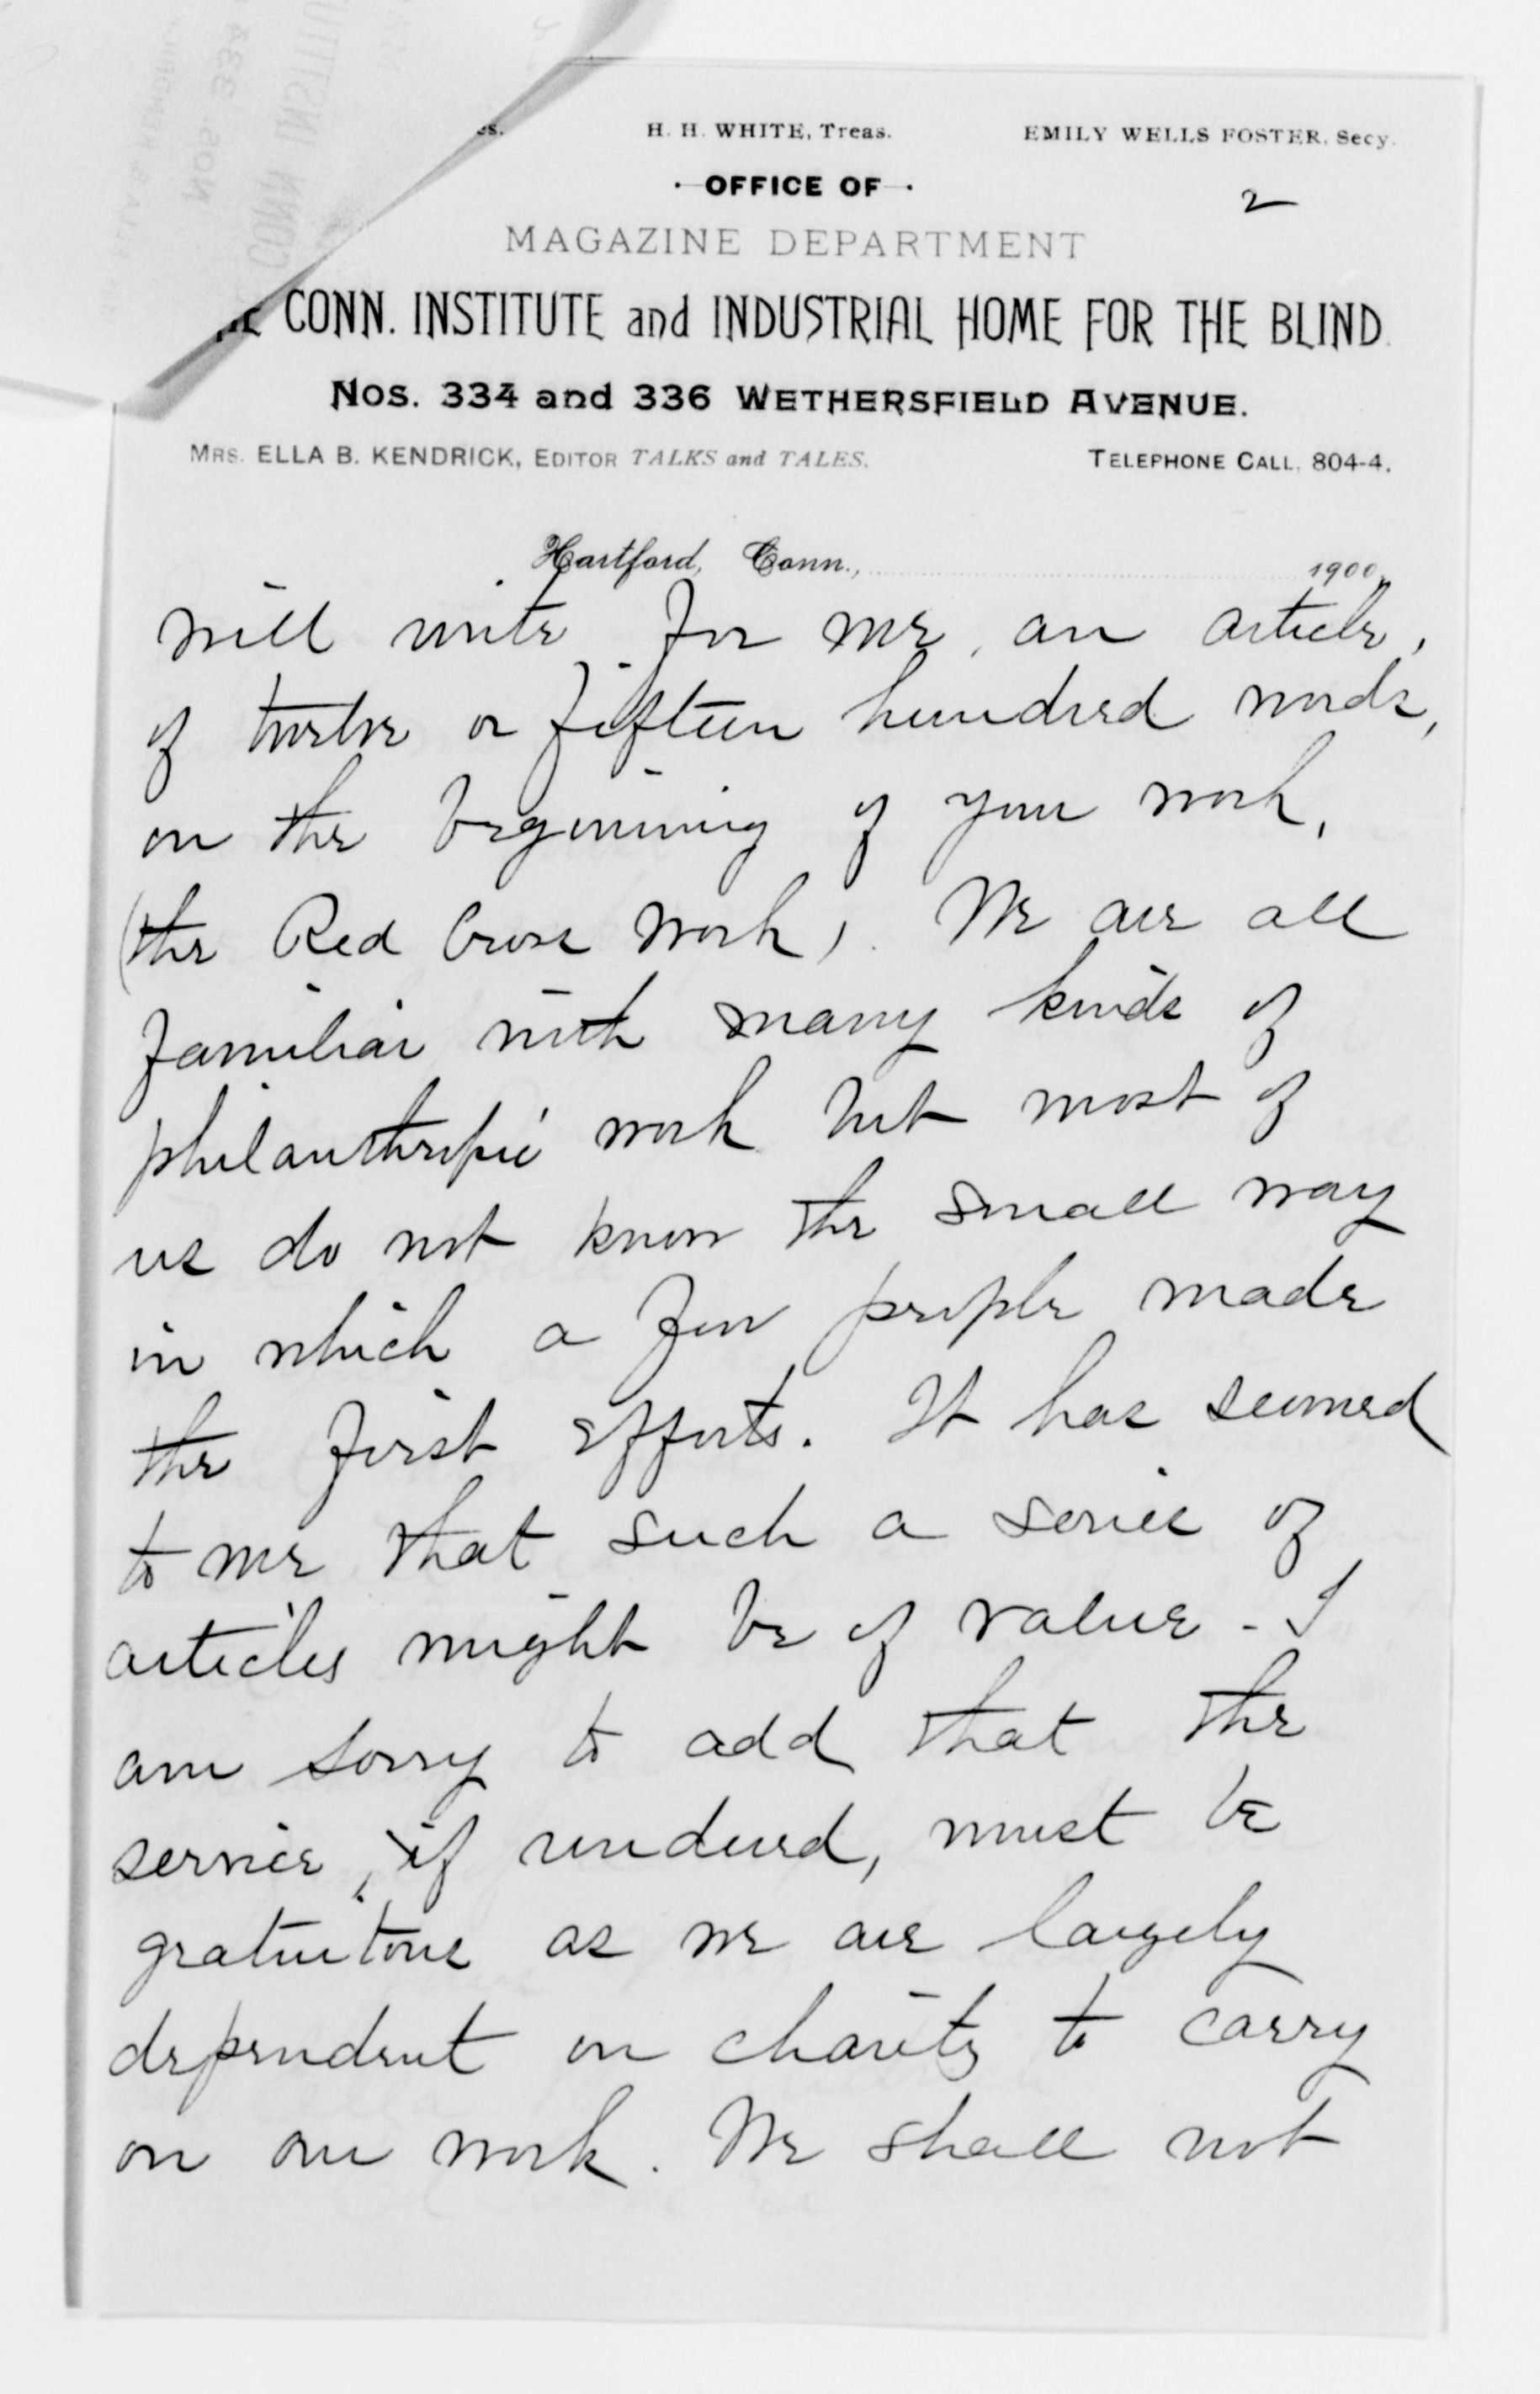 es. H. H. WHITE, Treas. EMILY WELLS FOSTER, Secy.
OFFICE OF
2
MAGAZINE DEPARTMENT
CONN. INSTITUTE and INDUSTRIAL HOME FOR THE BLIND.
Nos. 334 and 336 WETHERSFIELD AVENUE.
MRS. ELLA B. KENDRICK, EDITOR TALKS and TALES. TELEPHONE CALL, 804-4.
Hartford, Conn., 1900.
will write for me, an article,
of twelve or fifteen hundred words,
on the beginning of your work,
(the Red Cross work). We are all
familiar with many kinds of
philanthropic work but most of
us do not know the small way
in which a few people made
the first efforts. It has seemed
to me that such a series of
articles might be of value - I
am sorry to add that the
service, if rendered, must be
gratuitous as we are largely
dependent on charity to carry
on our work. We shall not